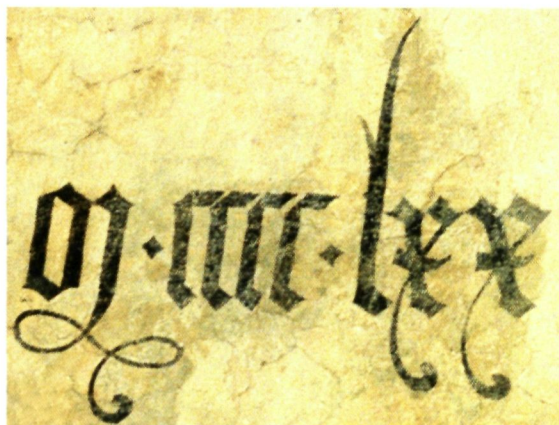 m·cccc·lxx